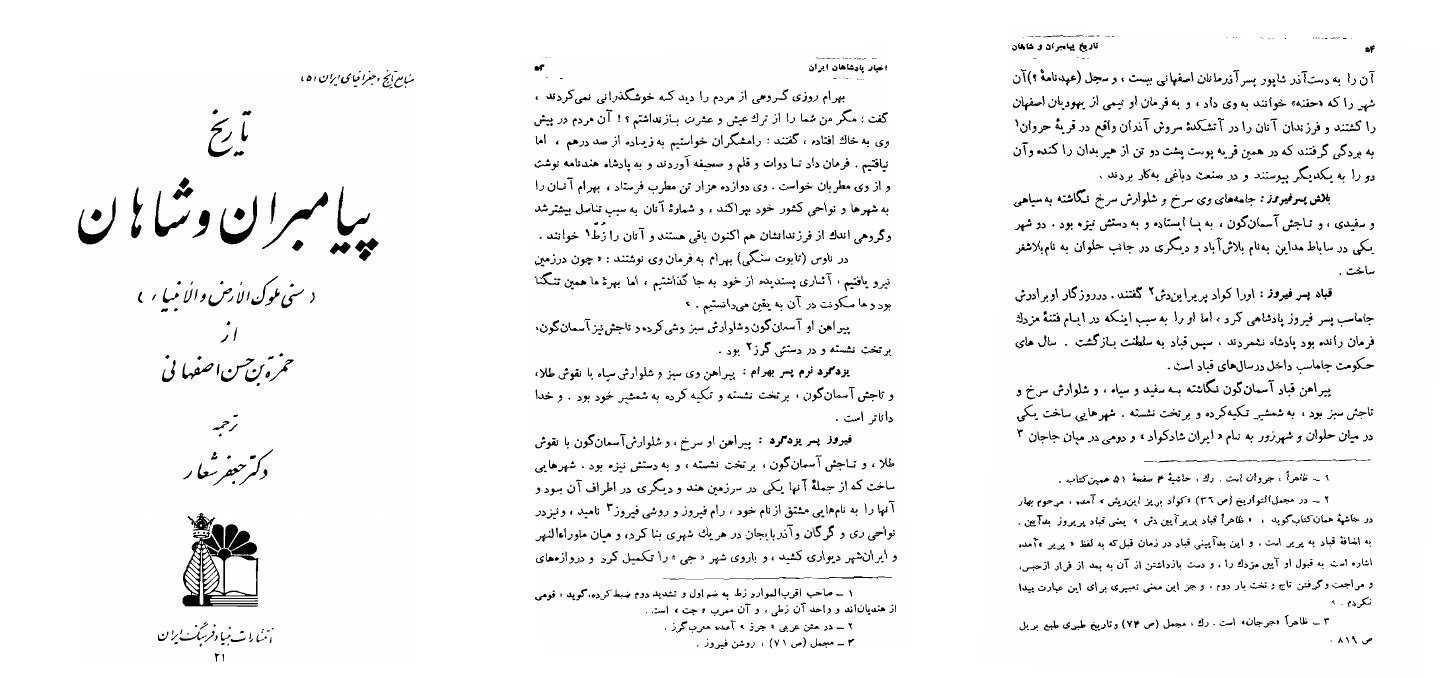 منابع تاریخ و جغرافیای ایران (۵)
تاریخ
پیامبران و شاهان
( سنی ملوک الأرض و الأنبیاء )
از
حمزة بن حسن اصفهانی
ترجمه
دکتر جعفر شعار
انتشارات بنیاد فرهنگ ایران
۲۱
اخبار پادشاهان ایران
۵۳
بهرام روزی گروهی از مردم را دید که خوشگذرانی نمی‌کردند ،
گفت ؛ مگر من شما را از ترك عیش و عشرت بازنداشتم ؟! آن مردم در پیش
وی به خاك افتاده ، گفتند : رامشگران خواستیم به زیاده از صد درهم ، اما
نیافتیم . فرمان داد تا دوات و قلم و صحیفه آوردند و به پادشاه هند نامه نوشت
و از وی مطربان خواست . وی دوازده هزار تن مطرب فرستاد ، بهرام آنان را
به شهرها و نواحی کشور خود بپراکند ، و شمارهٔ آنان به سبب تناسل بیشتر شد
وگروهی اندك از فرزندانشان هم اکنون باقی هستند و آنان را زُطّ۱ خوانند .
در ناوس (تابوت سنگی) بهرام به فرمان وی نوشتند : « چون در زمین
نیرو یافتیم ، آثاری پسندیده از خود به جا گذاشتیم ، اما بهرهٔ ما همین تنگنا
بود و ما سکونت در آن به یقین می‌دانستیم . »
پیراهن او آسمان‌گون و شلوارش سبز وشی کرده و تاجش نیز آسمان‌گون،
بر تخت نشسته و در دستش گرز۲ بود .
یزدگرد نرم پسر بهرام : پیراهن وی سبز و شلوارش سیاه با نقوش طلا،
و تاجش آسمان‌گون ، بر تخت نشسته و تکیه کرده به شمشیر خود بود . و خدا
داناتر است .
فیروز پسر یزدگرد : پیراهن او سرخ ، و شلوارش آسمان‌گون با نقوش
طلا ، و تاجش آسمان‌گون ، بر تخت نشسته ، و به دستش نیزه بود . شهرهایی
ساخت که از جملهٔ آنها یکی در سرزمین هند و دیگری در اطراف آن بود و
آنها را به نامهایی مشتق از نام خود ، رام فیروز و روشی فیروز۳ نامید ، و نیز در
نواحی ری و گرگان و آذربایجان در هر یك شهری بنا کرد ، و میان ماوراءالنهر
و ایران‌شهر دیواری کشید ، و باروی شهر « جی » را تکمیل کرد و دروازه‌های
۱ ــ صاحب اقرب‌الموارد زط به ضم اول و تشدید دوم ضبط کرده، گوید ، قومی
از هندیان‌اند و واحد آن زطی ، و آن معرب « جت » است .
۲ ــ در متن عربی « جرز » آمده معرب گرز .
۳ ــ مجمل (ص ۷۱) ، روشن فیروز .
تاریخ پیامبران و شاهان
۵۴
آن را به دست آذر شاپور پسر آذرمانان اصفهانی بیست ، و سجل (عهدنامهٔ ؟) آن
شهر را که «حفنه» خوانند به وی داد ، و به فرمان او نیمی از یهودیان اصفهان
را کشتند و فرزندان آنان را در آتشکدهٔ سروش آذران واقع در قریهٔ حروان۱
به بردگی گرفتند که در همین قریه پوست پشت دو تن از هیربدان را کنده و آن
دو را به یکدیگر پیوستند و در صنعت دباغی به‌کار بردند .
بلاش پسر فیروز : جامه‌های وی سرخ و شلوارش سرخ نگاشته به سیاهی
و سفیدی ، و تاجش آسمان‌گون ، به پا ایستاده و به دستش نیزه بود . دو شهر
یکی در ساباط مداین به‌نام بلاش‌آباد و دیگری در جانب حلوان به نام بلاشفر
ساخت .
قباد پسر فیروز : اورا کواد پریراین‌دش۲ گفتند . در روزگار او برادرش
جاماسب پسر فیروز پادشاهی کرد ، اما او را به سبب اینکه در ایام فتنهٔ مزدك
فرمان رانده بود پادشاه نشمردند ، سپس قباد به سلطنت بازگشت . سال های
حکومت جاماسب داخل در سال‌های قباد است .
پیراهن قباد آسمان‌گون نگاشته به سفید و سیاه ، و شلوارش سرخ و
تاجش سبز بود ، به شمشیر تکیه کرده و بر تخت نشسته . شهرهایی ساخت یکی
در میان حلوان و شهرزور به نام « ایران شادکواد » و دومی در میان جاجان ۳
۱ ــ ظاهراً ، جروان است . رك . حاشیهٔ ۴ صفحهٔ ۵۱ همین کتاب .
۲ ــ در مجمل‌التواریخ (ص ۳۶) «کواد بریز این‌ریش » آمده ، مرحوم بهار
در حاشیهٔ همان کتاب گوید ، « ظاهراً قباد بریرآیین دش » یعنی قباد پریروز بدآیین .
به اضافهٔ قباد به پریر است ، و این بدآیینی قباد در زمان قبل که به لفظ « پریر »آمده
اشاره است به قبول او آیین مزدك را ، و دست بازداشتن از آن به بعد از فرار از حبس.
و مراجعت وگرفتن تاج و تخت بار دوم ، و جز این معنی تعبیری برای این عبارت پیدا
نکردم . »
۳ ــ ظاهراً «جرجان» است . رك ، مجمل (ص ۷۴) و تاریخ طبری طبع بریل
ص ۸۱۹ .